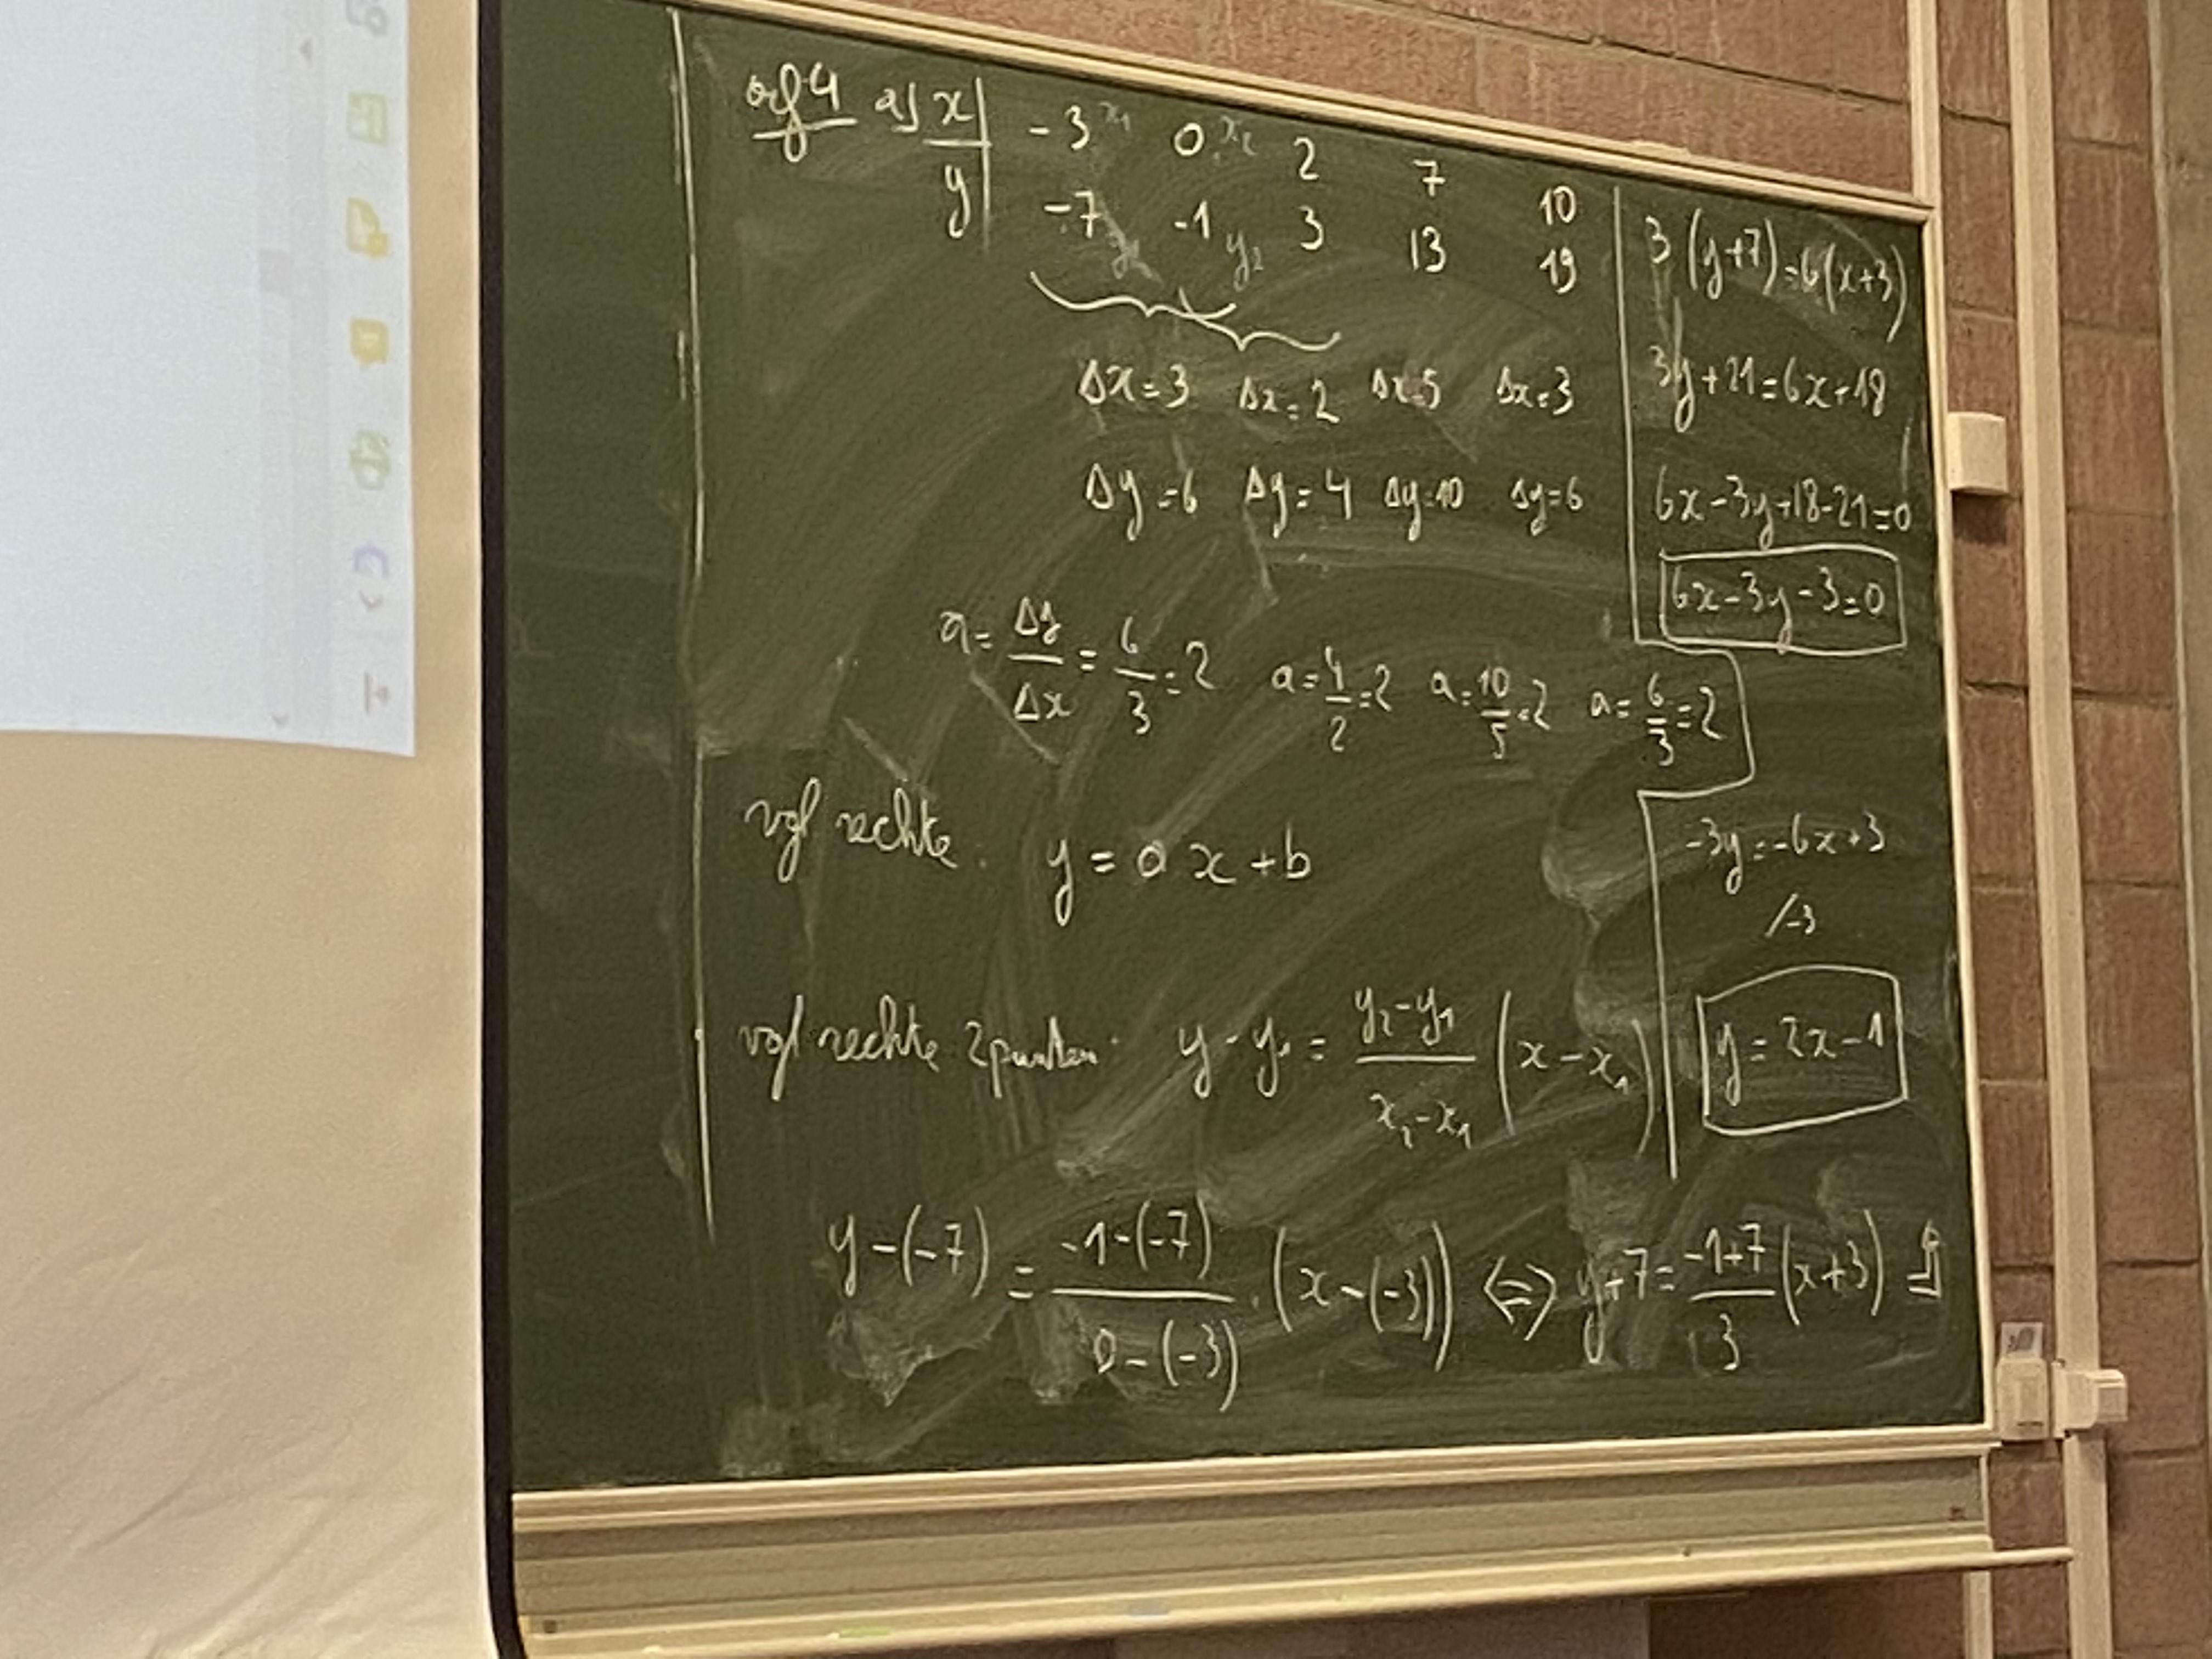 oef 4 a) x | -3 x₁ 0 x₂ 2 7 10
y | -7 y₁ -1 y₂ 3 13 19
Δx=3 Δx=2 Δx=5 Δx=3
Δy=6 Δy=4 Δy=10 Δy=6
a = Δy/Δx = 6/3 = 2 a = 4/2 = 2 a = 10/5 = 2 a = 6/3 = 2
vgl rechte: y = a x + b
vgl rechte 2 punten: y - y₁ = (y₂ - y₁)/(x₂ - x₁) (x - x₁)
y - (-7) = (-1 - (-7))/(0 - (-3)) · (x - (-3)) ⇔ y + 7 = (-1+7)/3 (x+3)
3 (y+7) = 6(x+3)
3y + 21 = 6x + 18
6x - 3y + 18 - 21 = 0
6x - 3y - 3 = 0
-3y = -6x + 3
/-3
y = 2x - 1